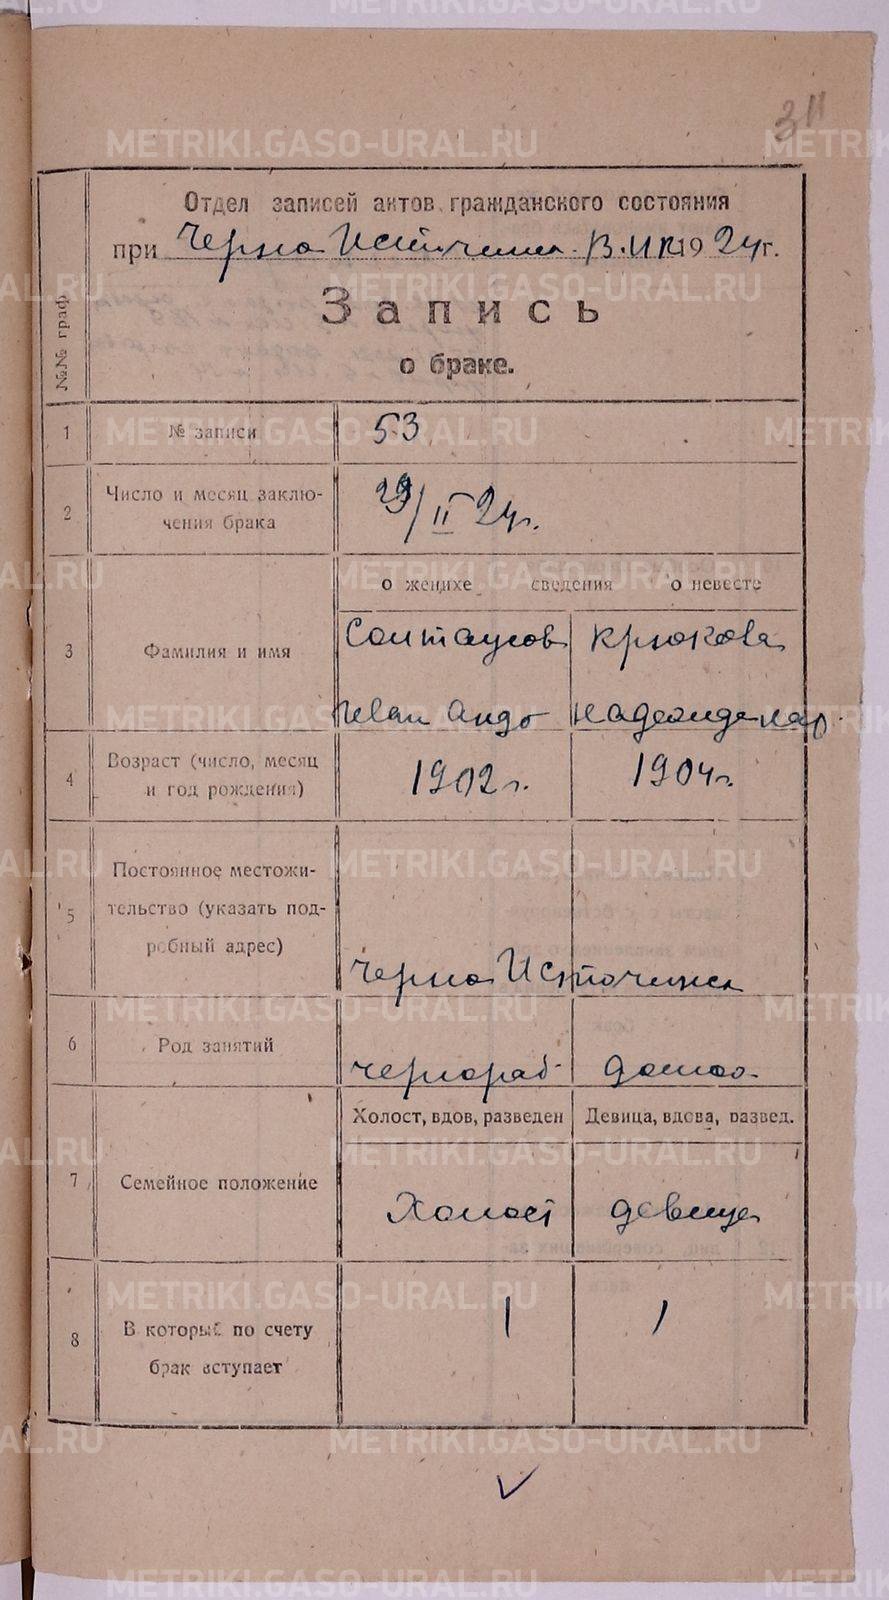 METRIKI.GASO-URAL.RU
311
Отдел записей актов гражданского состояния
при Черно Источинск. В.И.К. 1924 г.
№№ граф
Запись
о браке.
1 № записи 53
2 Число и месяц заклю-
чения брака 29/II 24 г.
о женихе сведения о невесте
3 Фамилия и имя
Крюкова
Иван Андр Надежда
4 Возраст (число, месяц
и год рождения) 1902 г. 1904 г.
5 Постоянное местожи-
тельство (указать под-
робный адрес)
Черно Источинск
6 Род занятий чернораб домхо.
Холост, вдов, разведен Девица, вдова, развед.
7 Семейное положение Холост девица
8 В который по счету
брак вступает 1 1